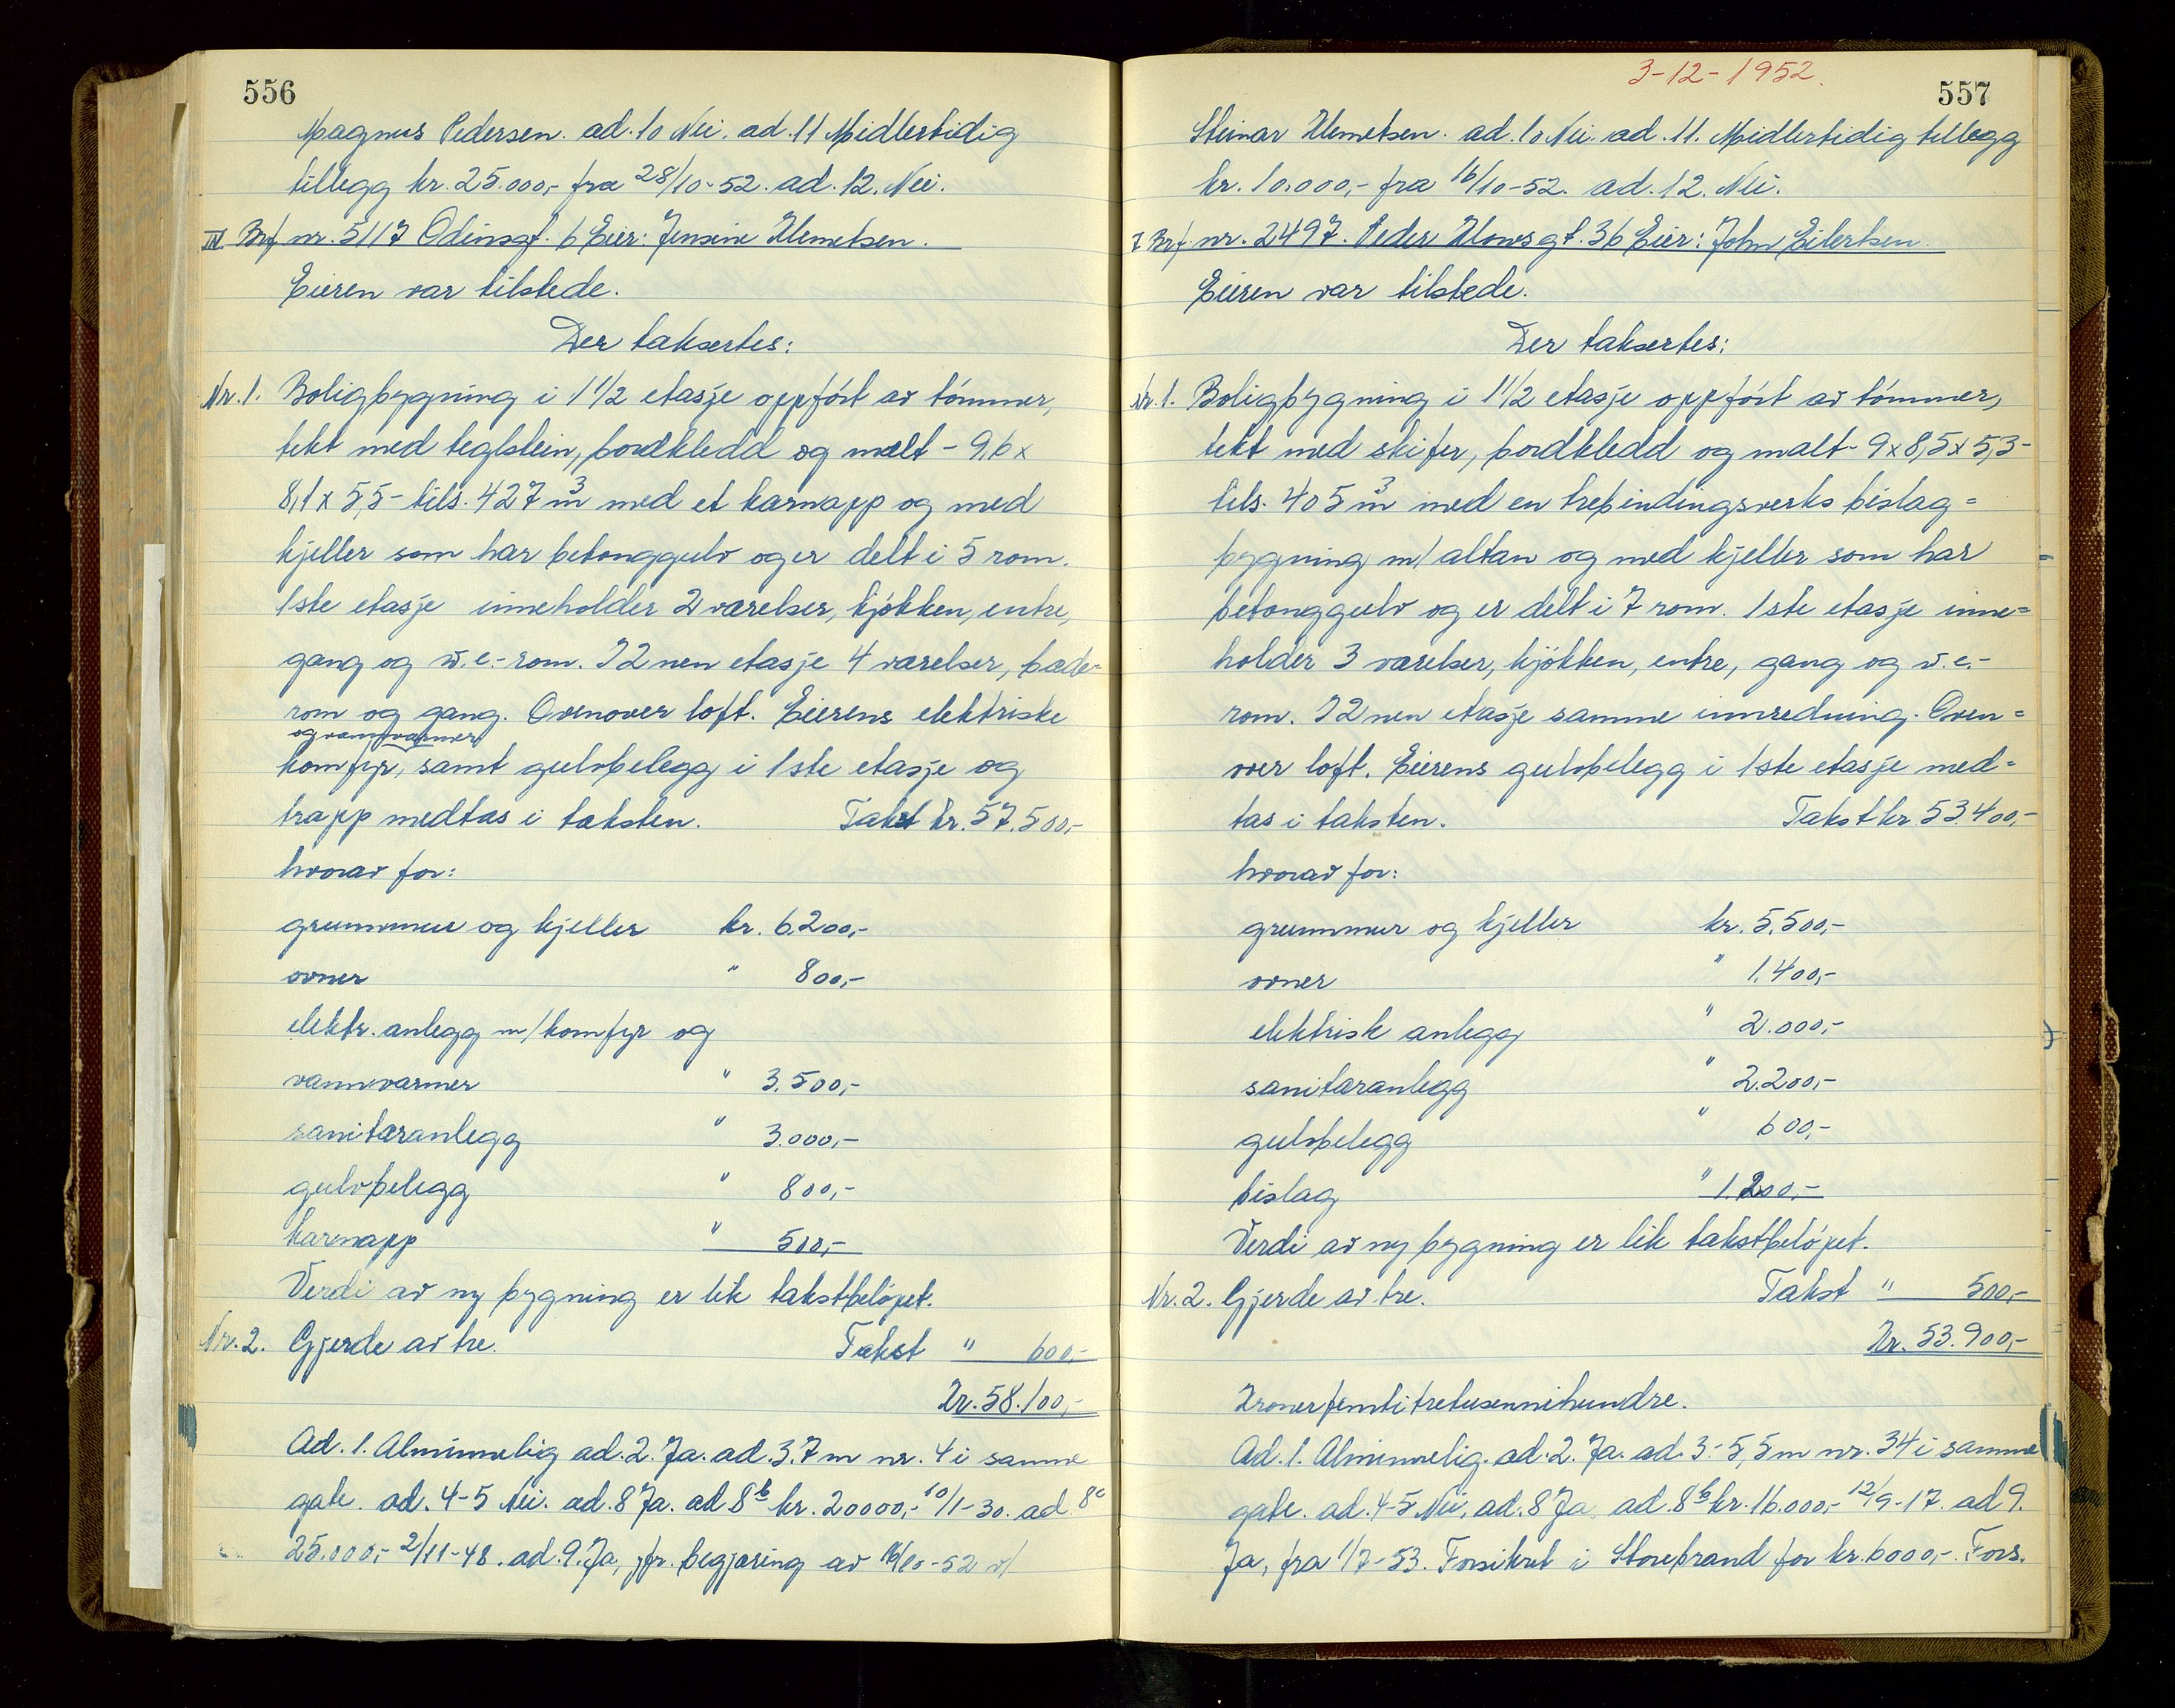 556
Magnus Pedersen. ad. 10 Nei. ad. 11 Midlertidig
tillegg kr. 25.000,- fra 28/10-52. ad. 12. Nei.
IV Brf nr. 5117 Odinsgt. 6 Eier: Jensine Klemetsen.
Eieren var tilstede.
Der taksertes:
Nr. 1. Boligbygning i 1 1/2 etasje oppført av tømmer,
tekt med teglstein, bordkledd og malt - 9,6 x
8,1 x 5,5 - tils. 427 m3 med et karnapp og med
kjeller som har betonggulv og er delt i 5 rom.
1ste etasje inneholder 2 værelser, kjøkken, entre,
gang og w.c.-rom. I 2nen etasje 4 værelser, bade-
rom og gang. Ovenover loft. Eierens elektriske
og vannvarmer
komfyr, samt gulvbelegg i 1ste etasje og
trapp medtas i taksten. Takst kr. 57.500,-
hvorav for:
grunnmur og kjeller kr. 6.200,-
ovner " 800,-
elektr. anlegg m/komfyr og
vannvarmer " 3.500,-
sanitæranlegg " 3.000,-
gulvbelegg " 800,-
karnapp " 500,-
Verdi av ny bygning er lik takstbeløpet.
Nr. 2. Gjerde av tre. Takst " 600,-
Kr. 58.100,-
Ad. 1. Alminnelig ad. 2. Ja. ad. 3. 7 m nr. 4 i samme
gate. ad. 4-5 Nei. ad. 8 Ja. ad 8b kr. 20000,- 10/1-30. ad. 8c
25.000,- 2/11-48. ad. 9. Ja, jfr. begjæring av 16/10-52 v/
3-12-1952.
557
Steinar Klemetsen. ad. 10 Nei. ad. 11. Midlertidig tillegg
kr. 10.000,- fra 16/10-52. ad. 12. Nei.
I Brf nr. 2497. Peder Klowsgt. 36 Eier: John Eilertsen.
Eieren var tilstede.
Der taksertes:
Nr. 1. Boligbygning i 1 1/2 etasje oppført av tømmer,
tekt med skifer, bordkledd og malt - 9 x 8,5 x 5,3 -
tils. 405 m3 med en trebindingsverks bislag=
bygning m/altan og med kjeller som har
betonggulv og er delt i 7 rom. 1ste etasje inne=
holder 3 værelser, kjøkken, entre, gang og w.c.-
rom. I 2nen etasje samme innredning. Oven=
over loft. Eierens gulvbelegg i 1ste etasje med=
tas i taksten. Takst kr. 53.400,-
hvorav for:
grunnmur og kjeller kr. 5.500,-
ovner " 1.400,-
elektrisk anlegg " 2.000,-
sanitæranlegg " 2.200,-
gulvbelegg " 600,-
bislag " 1.200,-
Verdi av ny bygning er lik takstbeløpet.
Nr. 2. Gjerde av tre. Takst " 500,-
Kr. 53.900,-
Kronerfemtitretusennihundre.
Ad. 1. Alminnelig. ad. 2. Ja. ad. 3. - 5,5 m nr. 34 i samme
gate. ad. 4-5 Nei. ad. 8 Ja. ad. 8b kr. 16.000,- 12/9-17. ad 9.
Ja, fra 1/7-53. Forsikret i Storebrand for kr. 6000,-. Fors.